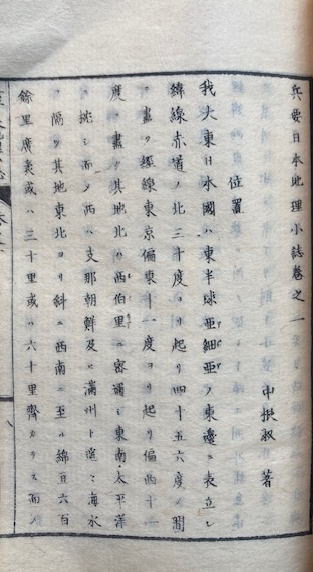 兵要日本地理小誌巻之一
中根淑 著
位置
我大東日本國ハ東半球亜細亜ノ東邊ニ表立シ
緯線赤道ノ北三十度ヨリ起リ四十五六度ノ間
ニ盡キ經線東京偏東十一度ヨリ起リ偏西十一
度ニ盡ク其地北ハ西伯里ニ密邇シ東南ハ太平洋
ニ枕ミ而メ西ハ支那朝鮮及ヒ滿州ト遙ニ海水
ヲ隔ツ其地東北ヨリ斜ニ西南ニ至ル綿亘六百
餘里廣袤或ハ三十里或ハ六十里齊カラス而